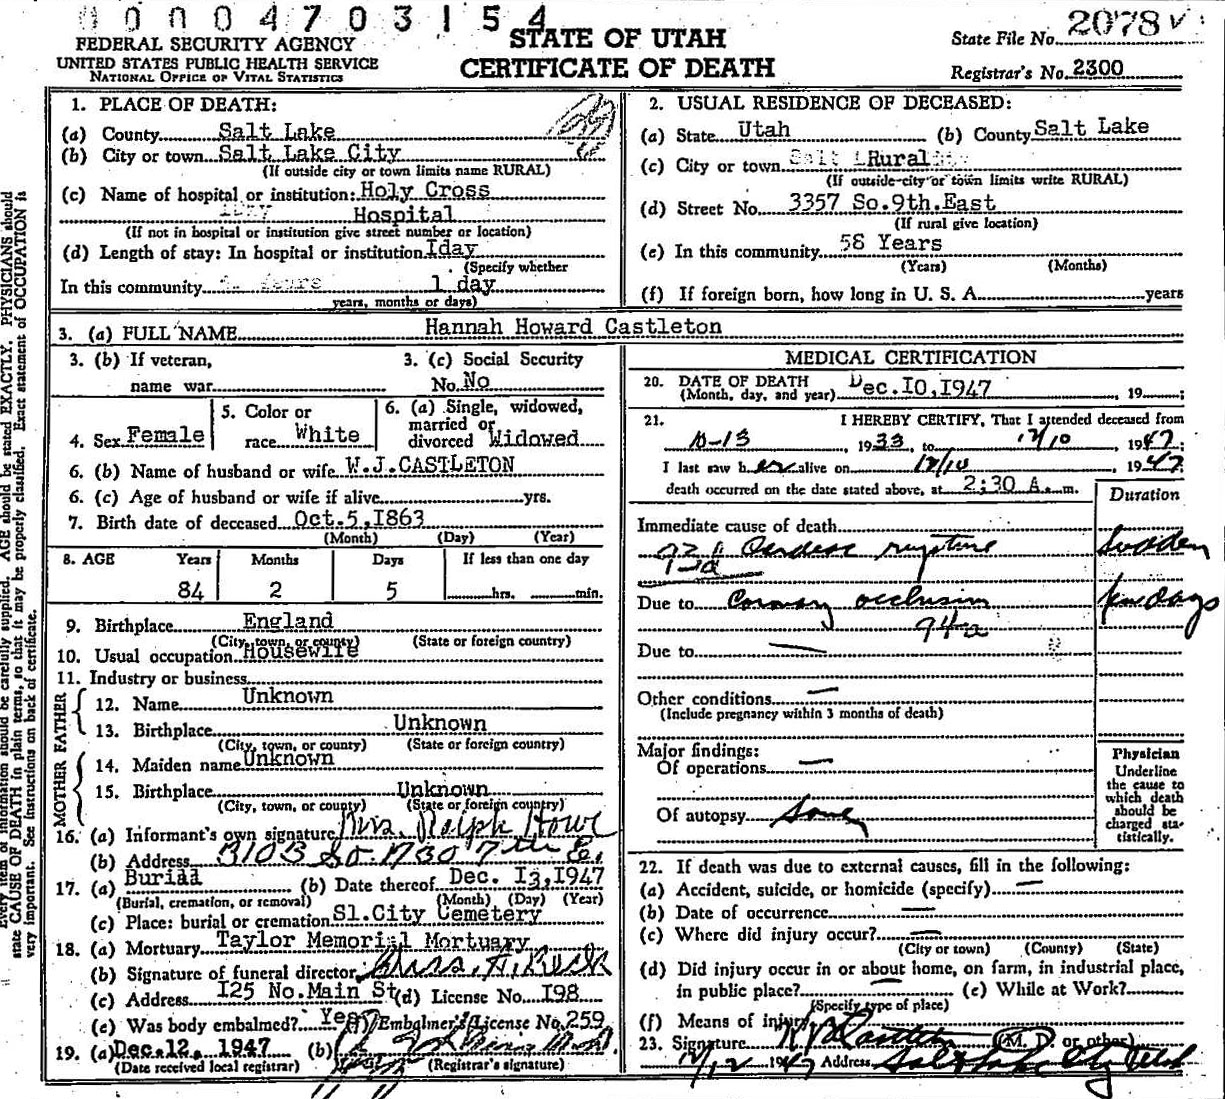 00004703154
FEDERAL SECURITY AGENCY
UNITED STATES PUBLIC HEALTH SERVICE
NATIONAL OFFICE OF VITAL STATISTICS
STATE OF UTAH
CERTIFICATE OF DEATH
State File No. 2078 ✓
Registrar's No. 2300
1. PLACE OF DEATH:
(a) County Salt Lake
(b) City or town Salt Lake City
(If outside city or town limits name RURAL)
(c) Name of hospital or institution: Holy Cross
Hospital
(If not in hospital or institution give street number or location)
(d) Length of stay: In hospital or institution Iday
(Specify whether
In this community 1 day
years, months or days)
2. USUAL RESIDENCE OF DECEASED:
(a) State Utah (b) County Salt Lake
(c) City or town Rural
(If outside city or town limits write RURAL)
(d) Street No. 3357 So.9th.East
(If rural give location)
(e) In this community 58 Years
(Years) (Months)
(f) If foreign born, how long in U. S. A. years
3. (a) FULL NAME Hannah Howard Castleton
3. (b) If veteran,
name war
3. (c) Social Security
No. No
4. Sex Female
5. Color or
race White
6. (a) Single, widowed,
married or
divorced Widowed
6. (b) Name of husband or wife W.J.CASTLETON
6. (c) Age of husband or wife if alive yrs.
7. Birth date of deceased Oct.5,I863
(Month) (Day) (Year)
8. AGE Years Months Days If less than one day
84 2 5 hrs. min.
9. Birthplace England
(City, town, or county) (State or foreign country)
10. Usual occupation Housewife
11. Industry or business
FATHER
12. Name Unknown
13. Birthplace Unknown
(City, town, or county) (State or foreign country)
MOTHER
14. Maiden name Unknown
15. Birthplace Unknown
(City, town, or county) (State or foreign country)
16. (a) Informant's own signature Mrs. Ralph Howe
(b) Address 3103 So.
17. (a) Burial (b) Date thereof Dec. I3,1947
(Burial, cremation, or removal) (Month) (Day) (Year)
(c) Place: burial or cremation Sl.City Cemetery
18. (a) Mortuary Taylor Memorial Mortuary
(b) Signature of funeral director
(c) Address I25 No.Main St (d) License No. I98
(e) Was body embalmed? Yes (f) Embalmer's License No. 259
19. (a) Dec. 12, 1947 (b)
(Date received local registrar) (Registrar's signature)
MEDICAL CERTIFICATION
20. DATE OF DEATH Dec.IO,1947
(Month, day, and year) , 19 ;
21. I HEREBY CERTIFY, That I attended deceased from
10-13 , 1933, to 12/10 , 1947;
I last saw her alive on 12/10 , 1947
death occurred on the date stated above, at 2:30 A. m.
Duration
Immediate cause of death
Cardiac rupture Sudden
Due to Coronary occlusion few days
94a
Due to —
Other conditions —
(Include pregnancy within 3 months of death)
Major findings:
Of operations —
Of autopsy
Physician
Underline
the cause to
which death
should be
charged sta-
tistically.
22. If death was due to external causes, fill in the following:
(a) Accident, suicide, or homicide (specify) —
(b) Date of occurrence —
(c) Where did injury occur? —
(City or town) (County) (State)
(d) Did injury occur in or about home, on farm, in industrial place,
in public place? — (e) While at Work?
(Specify type of place)
(f) Means of injury
23. Signature (M. D. or other)
12/12 1947 Address Salt Lake City Utah
Every item of information should be carefully supplied. AGE should be stated EXACTLY. PHYSICIANS should
state CAUSE OF DEATH in plain terms, so that it may be properly classified. Exact statement of OCCUPATION is
very important. See instructions on back of certificate.